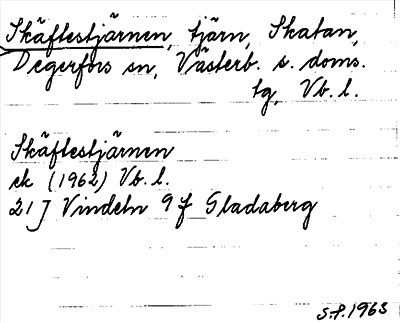 Skäftestjärnen, tjärn, Skatan,
Degerfors sn, Västerb. s. doms.
tg, Vb. l.
Skäftestjärnen
ek (1962) Vb. l.
21 J Vindeln 9 f Gladaberg
S.P. 1963